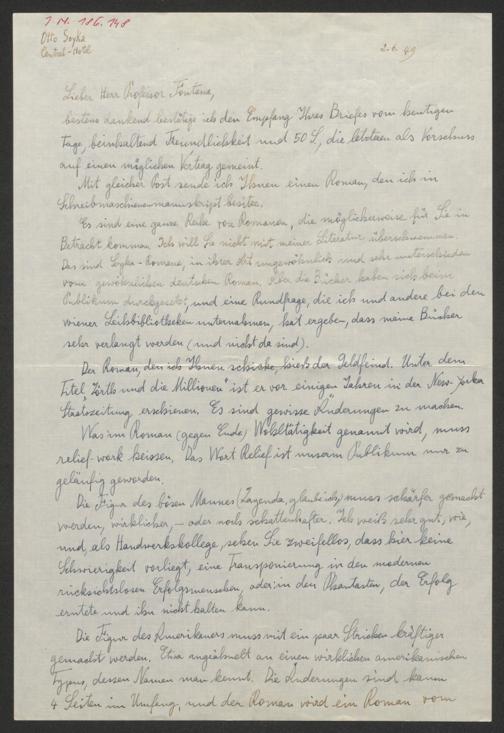 I.N. 186.148
Otto Soyka
Central-Hotel
2.6.49
Lieber Herr Professor Fontana,
bestens dankend bestätige ich den Empfang Ihres Briefes vom heutigen
Tage, beinhaltend Freundlichkeit und 50 S, die letzteren als Vorschuss
auf einen möglichen Vertrag gemeint.
Mit gleicher Post sende ich Ihnen einen Roman, den ich in
Schreibmaschinenmanuskript besitze.
Es sind eine ganze Reihe von Romanen, die möglicherweise für Sie in
Betracht kommen. Ich will Sie nicht mit meiner Literatur überschwemmen.
Das sind Soyka-Romane, in ihrer Art ungewöhnlich und sehr unterschieden
vom gewöhnlichen deutschen Roman. Aber die Bücher haben sich beim
Publikum durchgesetzt, und eine Rundfrage, die ich und andere bei den
wiener Leihbibliotheken unternahmen, hat ergeben, dass meine Bücher
sehr verlangt werden (und nicht da sind).
Der Roman, den ich Ihnen schicke, hiess der Geldfeind. Unter dem
Titel " und die Millionen" ist er vor einigen Jahren in der New-Yorker
Staatszeitung erschienen. Es sind gewisse Änderungen zu machen.
Was im Roman (gegen Ende) Wohltätigkeit genannt wird, muss
relief work heissen. Das Wort Relief ist unserm Publikum nur zu
geläufig geworden.
Die Figur des bösen Mannes (, glaube ich) muss schärfer gemacht
werden, wirklicher, – oder noch schattenhafter. Ich weiß sehr gut, wie,
und, als Handwerkskollege, sehen Sie zweifellos, dass hier keine
Schwierigkeit vorliegt, eine Transponierung in den modernen
rücksichtslosen Erfolgsmenschen, oder in den Phantasten, der Erfolg
erntete und ihn nicht halten kann.
Die Figur des Amerikaners muss mit ein paar Strichen kräftiger
gemacht werden. Etwa angeähnelt an einen wirklichen amerikanischen
Typus, dessen Namen man kennt. Die Änderungen sind kaum
4 Seiten im Umfang, und der Roman wird ein Roman vom